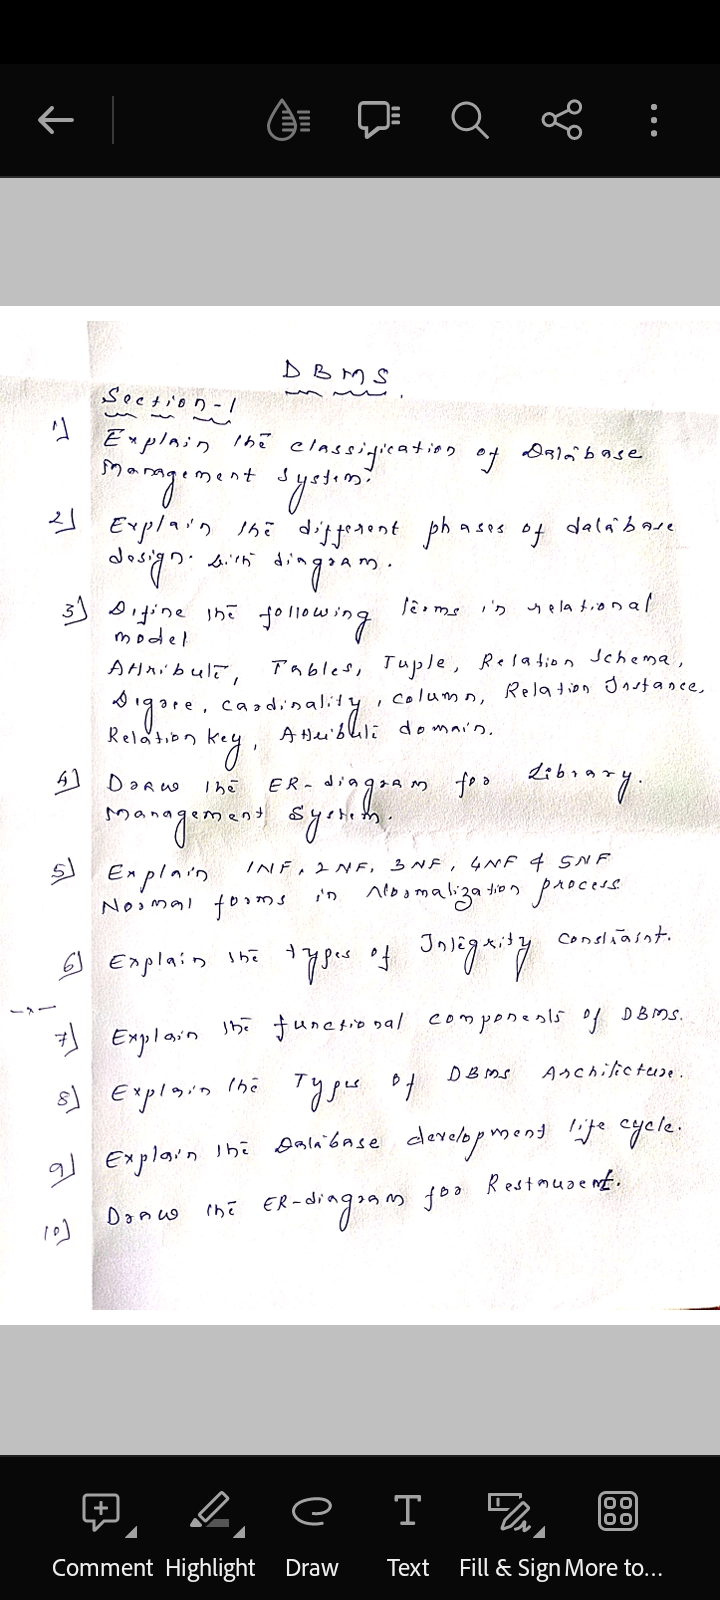 DBMS.
Section-1
1] Explain the classification of Database
Management System.
2] Explain the different phases of database
design. with diagram.
3] Difine the following terms in relational
model
Attribute, Tables, Tuple, Relation Schema,
Digree, cardinality, column, Relation Instance,
Relation key, Attribute domain.
4] Draw the ER-diagram for Library.
Management System.
5] Explain 1NF, 2NF, 3NF, 4NF & 5NF
Normal forms in Normalization process
6] Explain the types of Integrity constraint.
7] Explain the functional components of DBMS.
8] Explain the Types of DBMS Architecture.
9] Explain the Database development life cycle.
10] Draw the ER-diagram for Restaurent.
Comment Highlight Draw Text Fill & Sign More to...